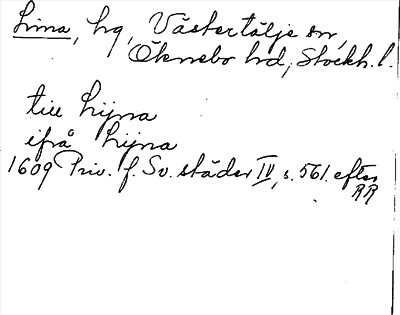 Lina, hg, Västertälje sn,
Öknebo hd, Stockh. l.
till Lijna
ifrå Lijna
1609 Priv. f. Sv. städer IV, s. 561. efter
RR